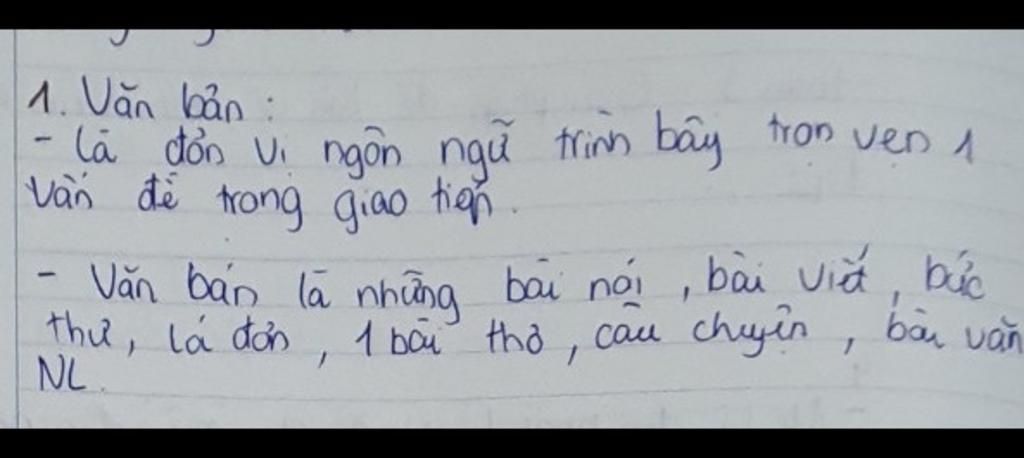 1. Văn bản :
- là đơn vị ngôn ngữ trình bày trọn vẹn 1
vấn đề trong giao tiếp.
- Văn bản là những bài nói, bài viết, bức
thư, lá đơn, 1 bài thơ, câu chuyện, bài văn
NL.